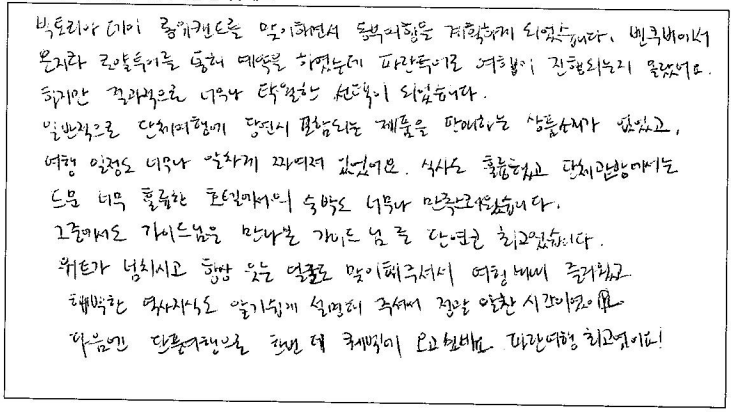 빅토리아 데이 롱위캔드를 맞이하면서 동부여행을 계획하게 되었습니다. 벤쿠버에서
온지라 로얄투어를 통해 예약을 하였는데 파란투어로 여행이 진행되는지 몰랐어요.
하지만 결과적으로 너무나 탁월한 선택이 되었습니다.
일반적으로 단체여행에 당연시 포함되는 제품을 판매하는 상품소개가 없었고,
여행 일정도 너무나 알차게 짜여져 있었어요. 식사도 훌륭했고 단체관광에서는
드문 너무 훌륭한 호텔에서의 숙박도 너무나 만족스러웠습니다.
그중에서도 가이드님은 만나본 가이드 님 중 단연코 최고였습니다.
위트가 넘치시고 항상 웃는 얼굴로 맞이해주셔서 여행 내내 즐거웠고
해박한 역사지식도 알기쉽게 설명해 주셔서 정말 알찬 시간이었어요
다음엔 단풍여행으로 한번 더 퀘벡에 오고 싶네요. 파란여행 최고였어요!